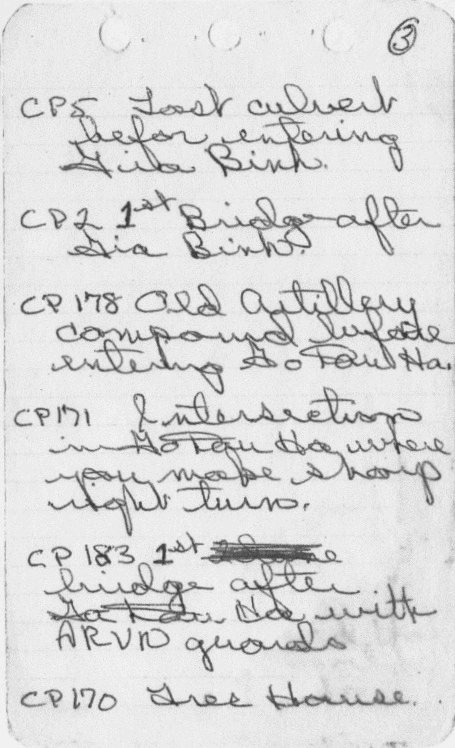 3
CP5 Last culvert
befor entering
Gia Binh.
CP2 1st Bridge after
Gia Binh.
CP 178 Old Artillery
compound before
entering Go Dau Ha.
CP171 Intersection
in Go Dau Ha, where
you make sharp
right turn.
CP 183 1st
bridge after
Go Dau Ha with
ARVN guards
CP170 Tree House.